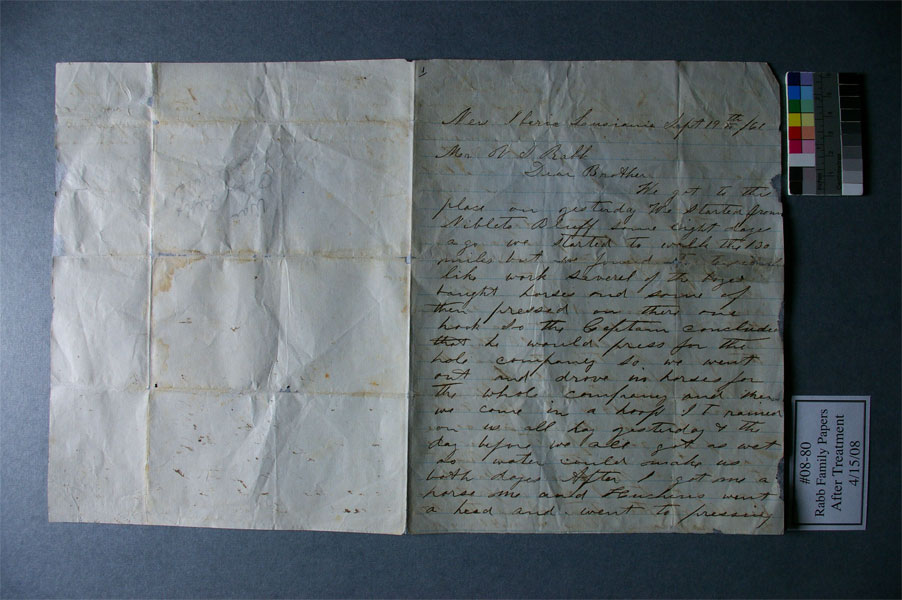 1
New Iberia Louisiana Sept 19th /61
Mr V S Rabb
Dear Brother
We got to this
place on yesterday We Started from
Niblets Bluff some eight days
ago we started to walk the 130
miles but we found it
like work severel of the boys
baught horses and some of
them pressed on there one
hook So the Captain concluded
that he would press for the
hole company so we went
out and drove in horses for
the whole company and then
we come in a hoop It rained
on us all day yesterday & the
day before we all got as wet
as water could make us
both days After I got me a
horse me and went
a head and went to pressing
#08-80
Rabb Family Papers
After Treatment
4/15/08